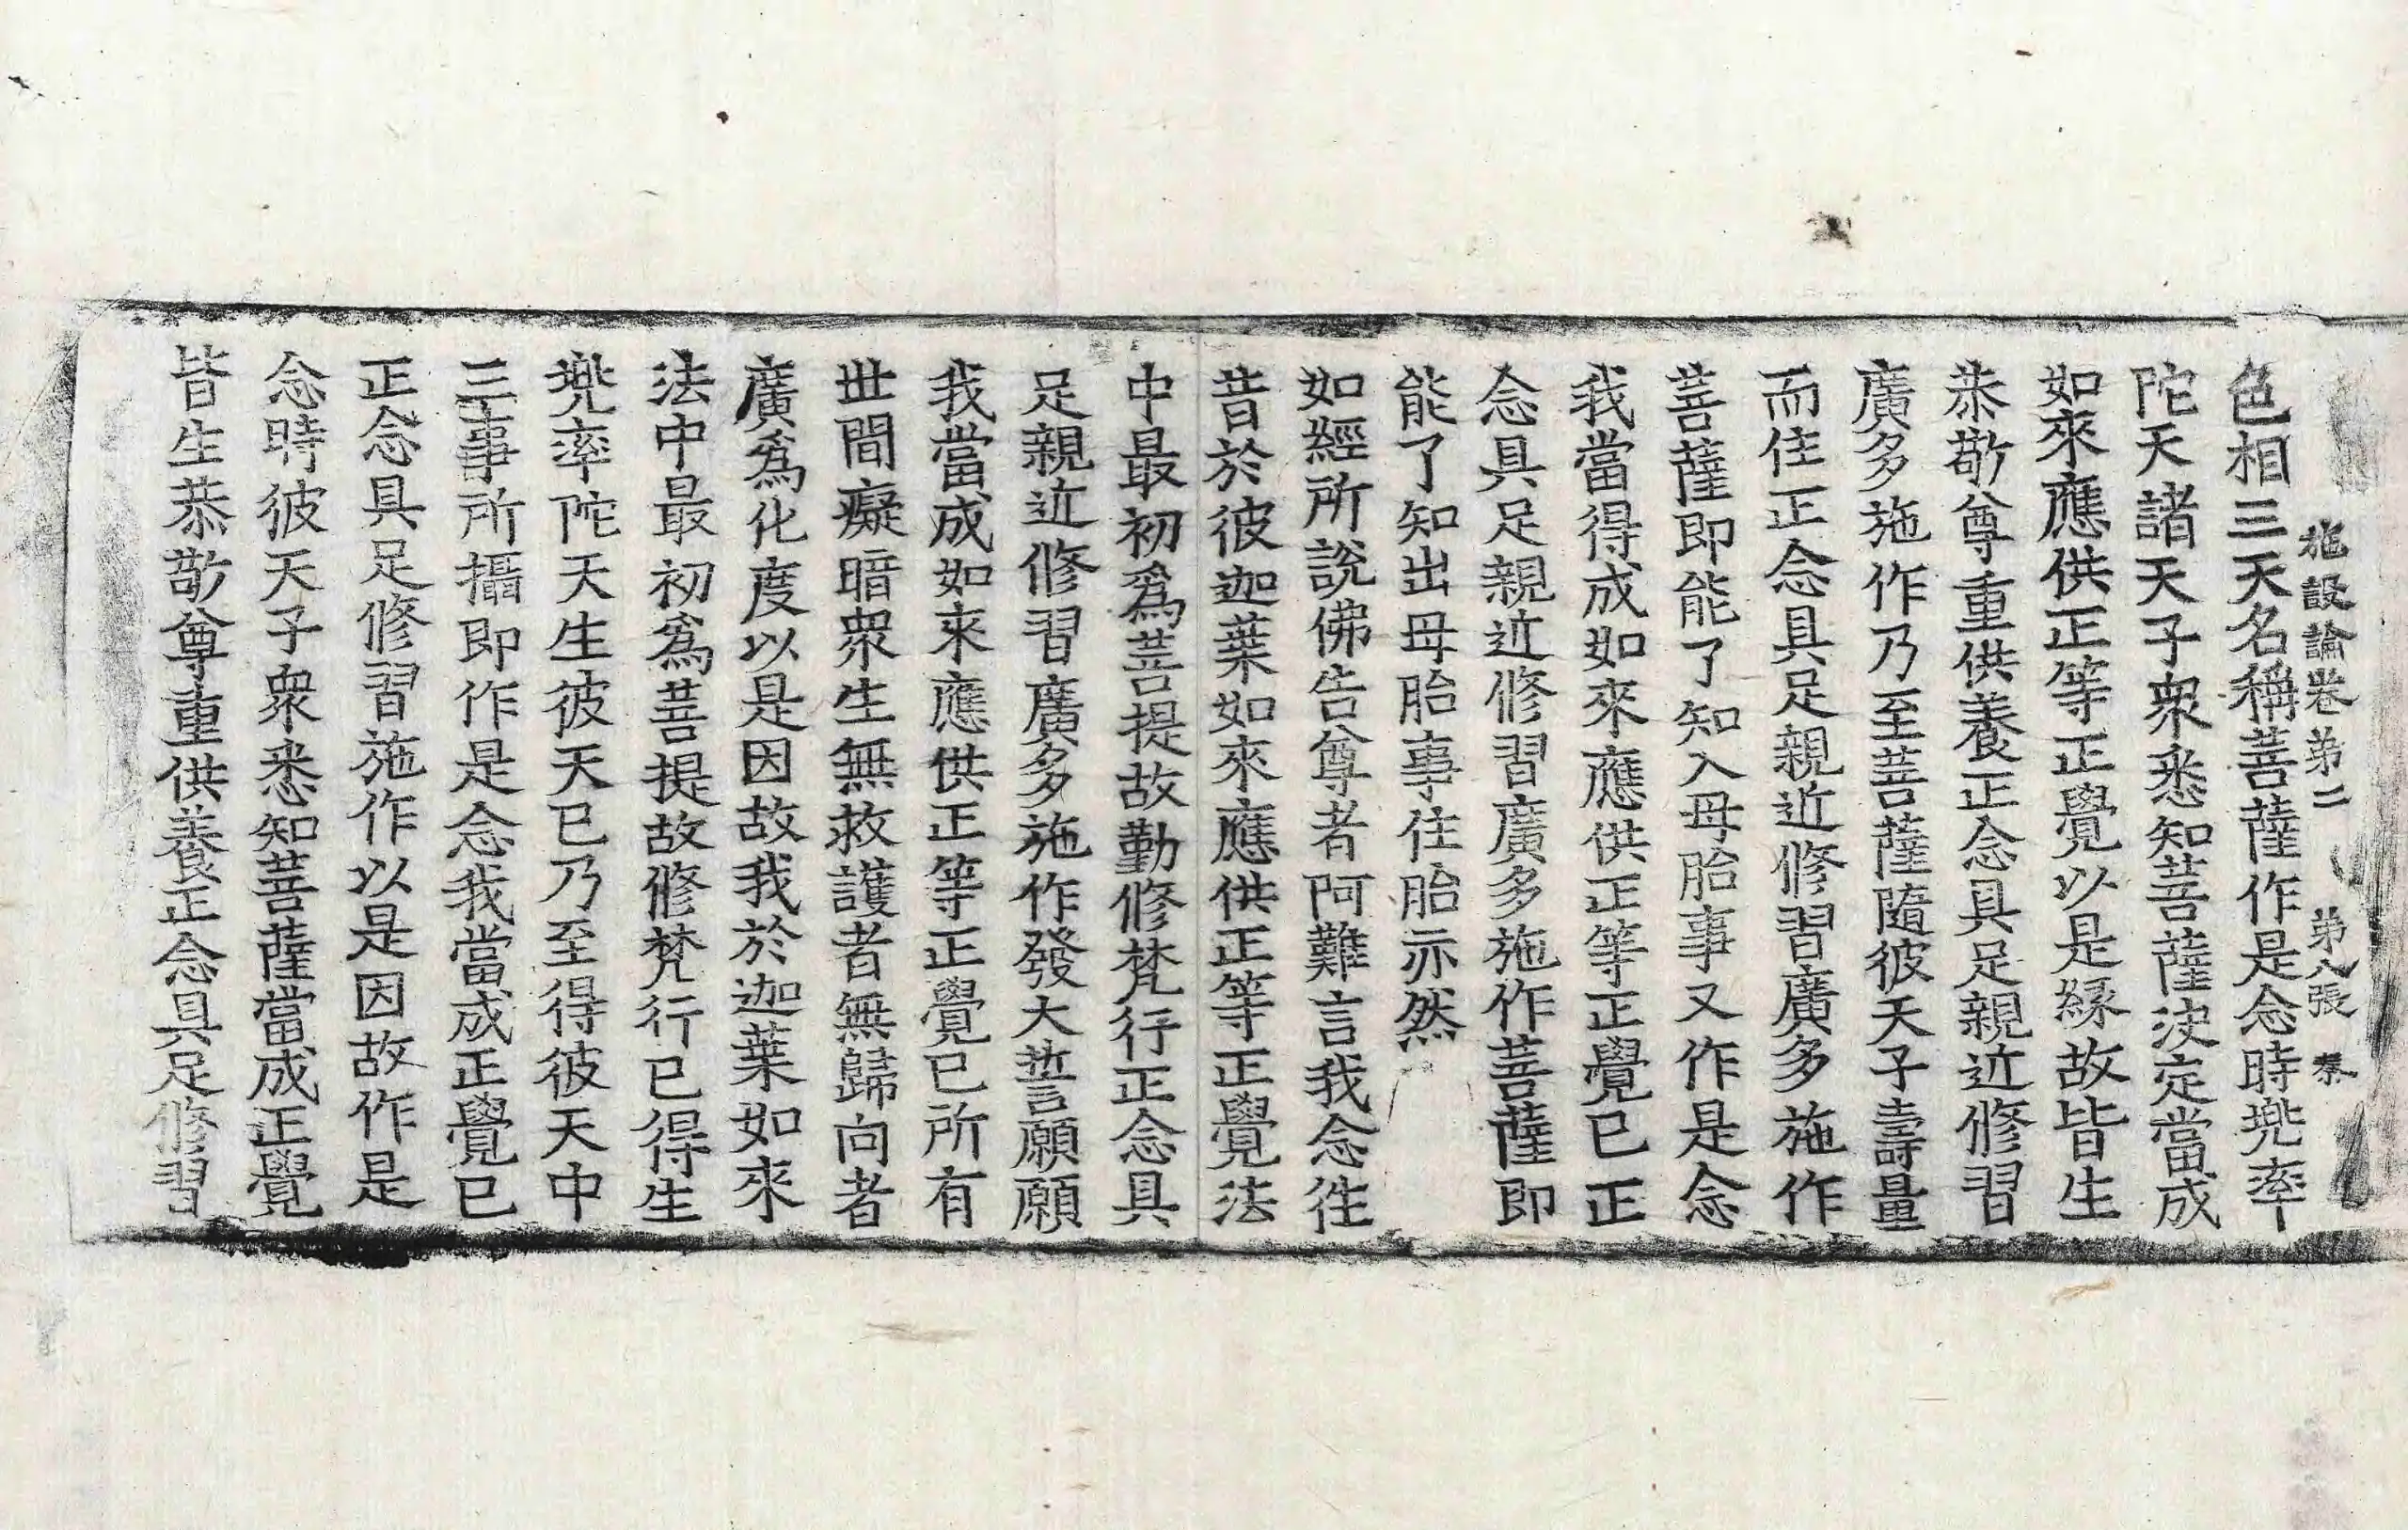 施設論卷第二 第八張 秦
色相三天名稱菩薩作是念時兠率
陀天諸天子衆悉知菩薩决定當成
如來應供正等正覺以是緣故皆生
恭敬尊重供養正念具足親近修習
廣多施作乃至菩薩隨彼天子壽量
而住正念具足親近修習廣多施作
菩薩即能了知入母胎事又作是念
我當得成如來應供正等正覺已正
念具足親近修習廣多施作菩薩即
能了知出母胎事住胎亦然
如經所說佛告尊者阿難言我念往
昔於彼迦葉如來應供正等正覺法
中最初爲菩提故勤修梵行正念具
足親近修習廣多施作發大誓願願
我當成如來應供正等正覺已所有
世間癡暗衆生無救護者無歸向者
廣爲化度以是因故我於迦葉如來
法中最初爲菩提故修梵行已得生
兠率陀天生彼天已乃至得彼天中
三事所攝即作是念我當成正覺已
正念具足修習施作以是因故作是
念時彼天子衆悉知菩薩當成正覺
皆生恭敬尊重供養正念具足修習